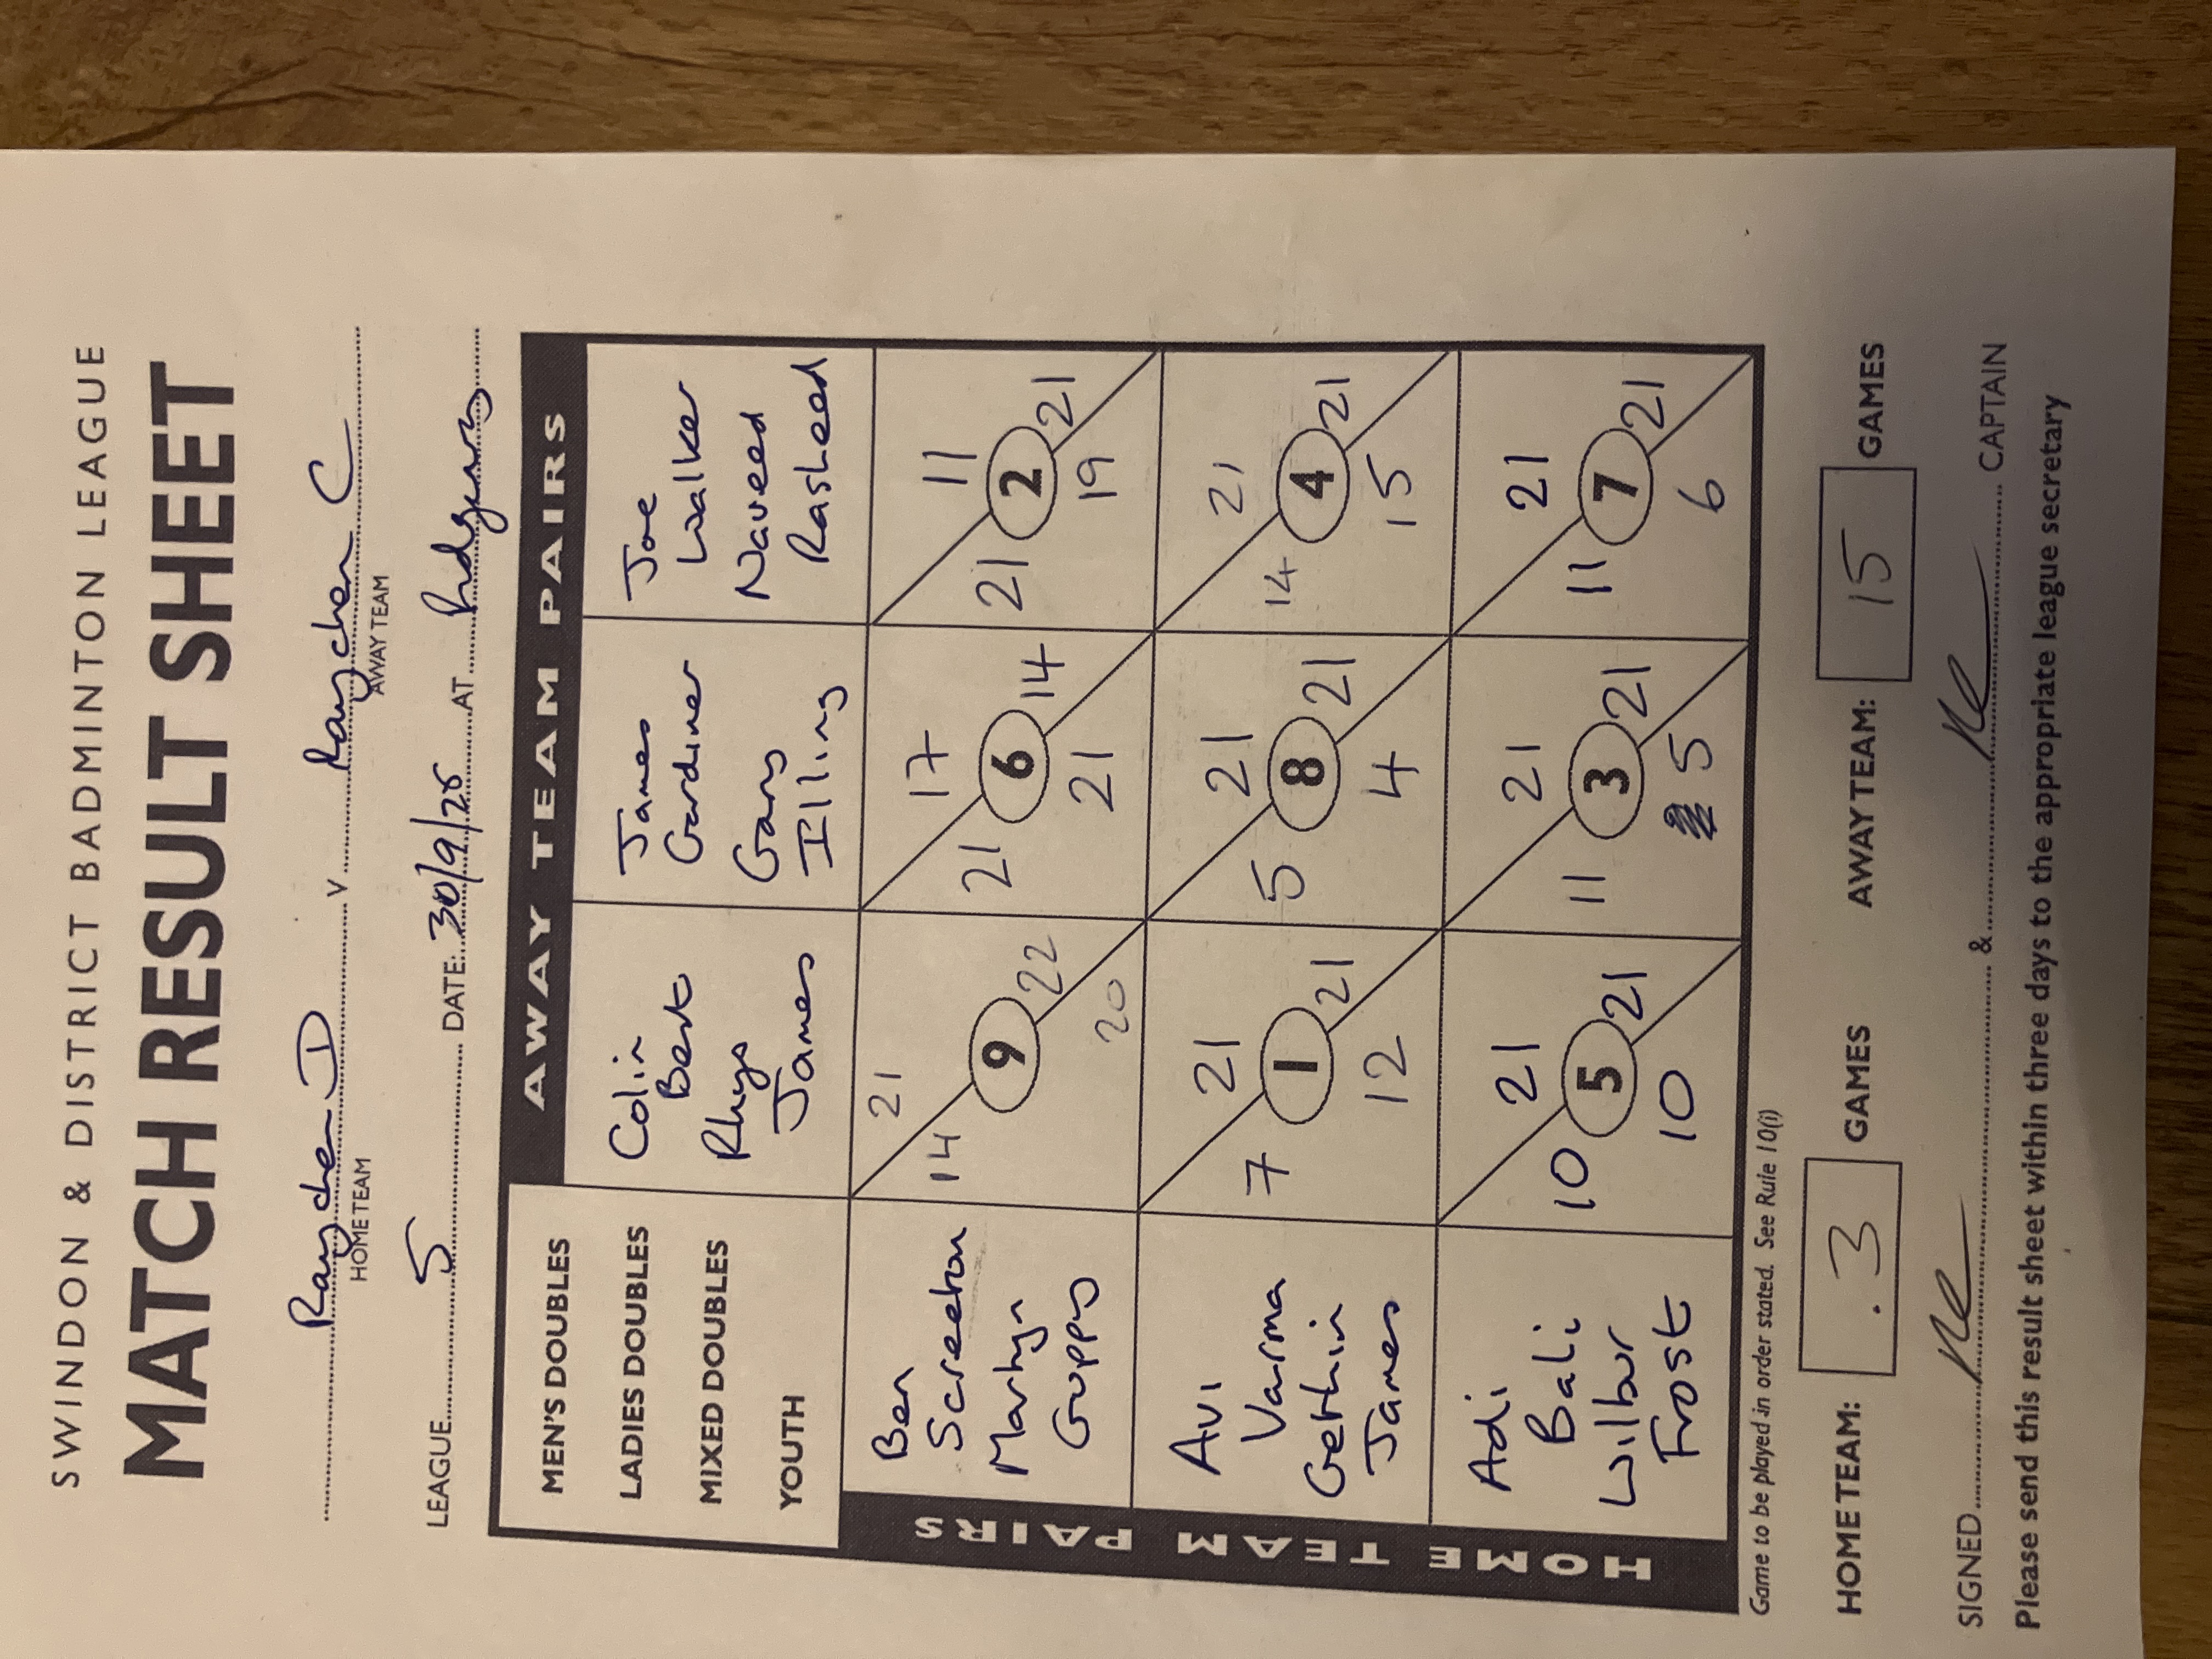 SWINDON & DISTRICT BADMINTON LEAGUE
MATCH RESULT SHEET
Raychem D v Raychem C
HOME TEAM AWAY TEAM
LEAGUE 5 DATE: 30/9/25 AT Ridgeway
AWAY TEAM PAIRS
MEN'S DOUBLES
LADIES DOUBLES
MIXED DOUBLES
YOUTH
Colin
Bent
Rhys
James
James
Gardiner
Gary
Illing
Joe
Walker
Naveed
Rasheed
HOME TEAM PAIRS
Ben
Screeton
Martyn
Gupps
14 21
9
20 22
21 17
6
21 14
21 11
2
19 21
Avi
Varma
Gethin
James
7 21
1
12 21
5 21
8
4 21
14 21
4
15 21
Adi
Bali
Wilbur
Frost
10 21
5
10 21
11 21
3
5 21
11 21
7
6 21
Game to be played in order stated. See Rule 10(i)
HOME TEAM: 3 GAMES AWAY TEAM: 15 GAMES
SIGNED & CAPTAIN
Please send this result sheet within three days to the appropriate league secretary